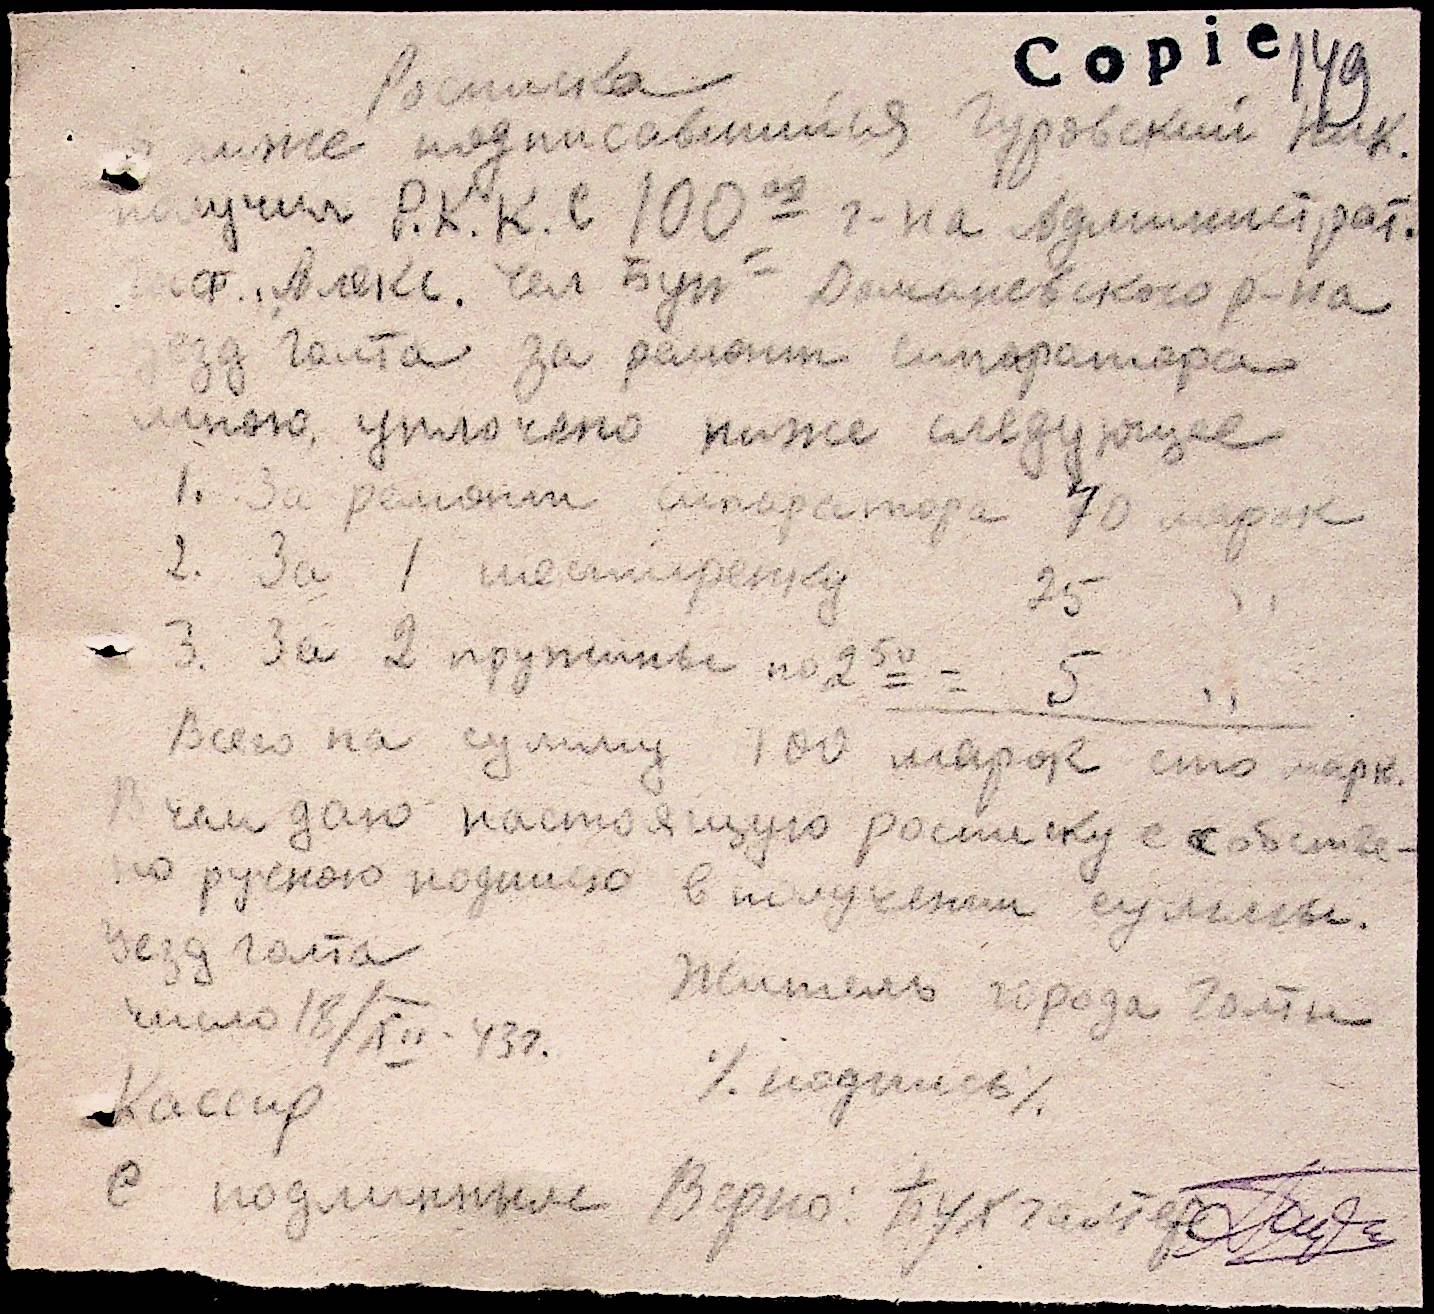 Copie 149
Росписка
Я ниже подписавшийся Гуровский Ник.
получил Р.К.К.С 100 00 г-на Администрат.
Алекс. Буж Доманевского р-на
уезд Голта за ремонт сипоратора
мною уплочено ниже следующее
1. За ремонт сипоратора 70 марок
2. За 1 шестиренку 25 ,,
3. За 2 пружины по 2 50 = 5 ,,
Всего на сумму 100 марок сто марк.
В чем даю настоящую росписку с собстве-
но ручною подписю в получении суммы.
Уезд Голта
Житель города Голты
число 18/XII - 43г.
/. подпись ./.
Кассир
С подлинным Верно: Бухгалтер